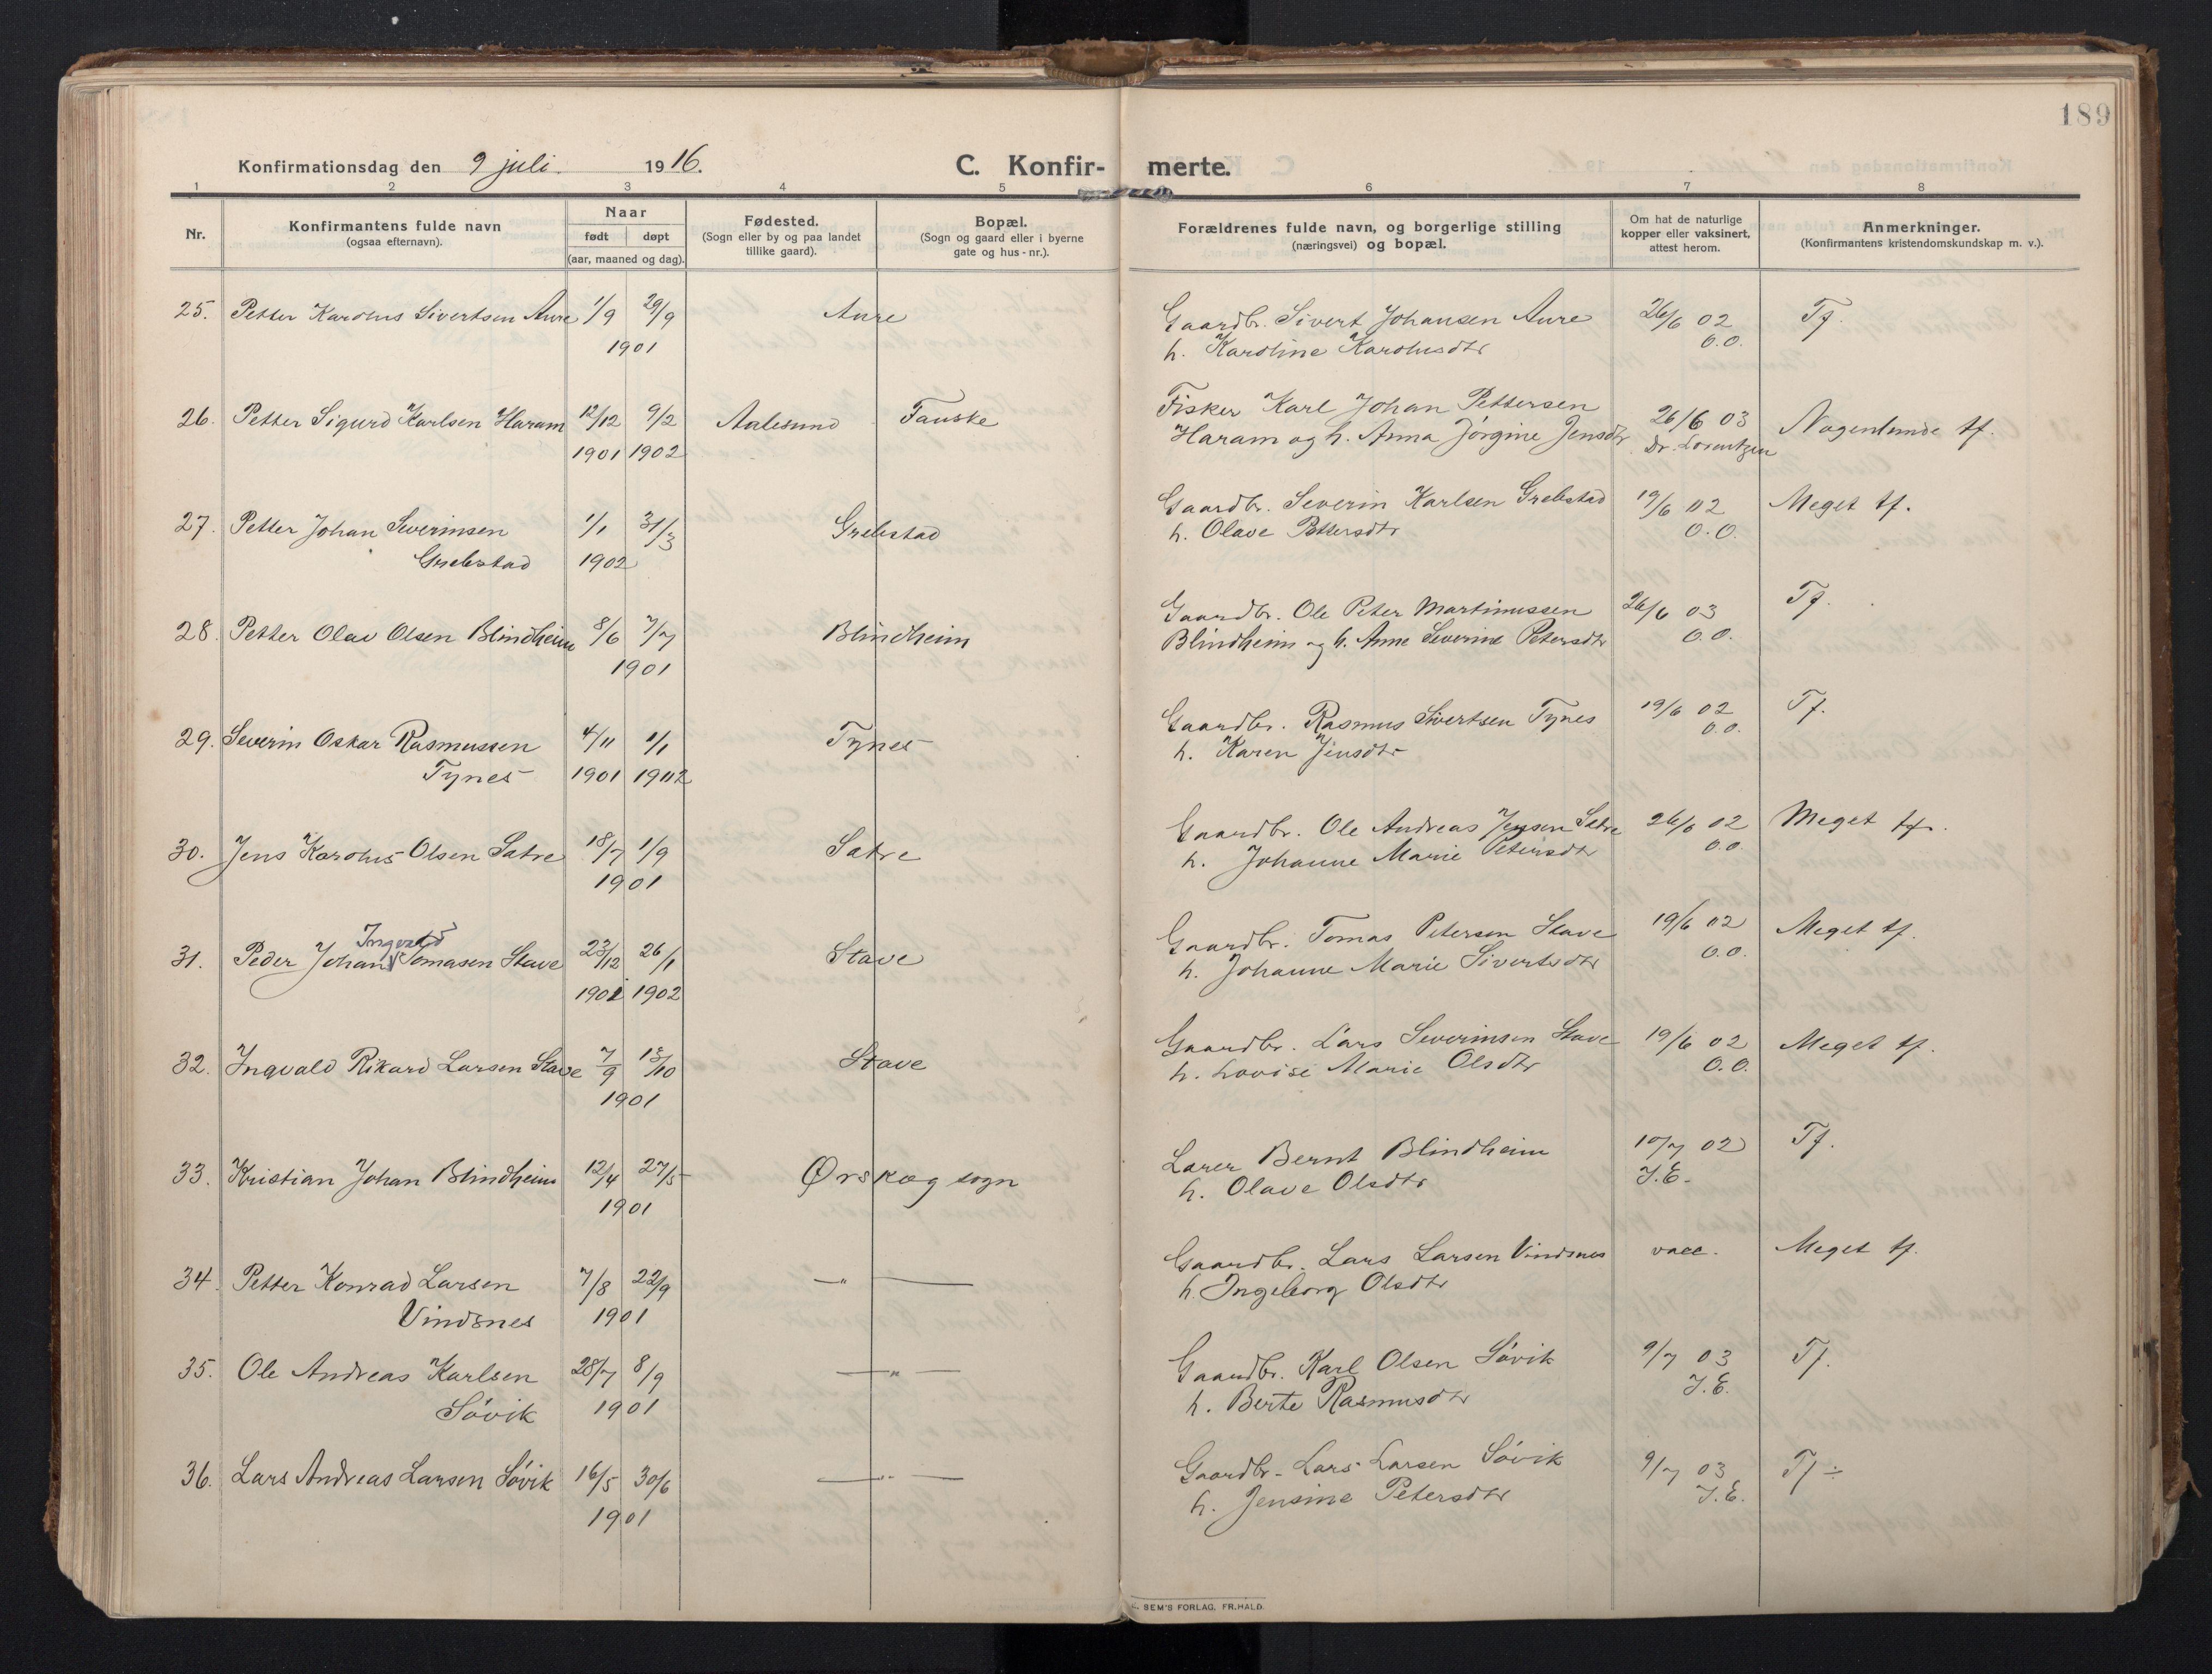 189
Konfirmationsdag den 9 juli. 1916.
C. Konfir- merte.
1 2 3 4 5 6 7 8
Nr.
Konfirmantens fulde navn
(ogsaa efternavn).
Naar
født døpt
(aar, maaned og dag).
Fødested.
(Sogn eller by og paa landet
tillike gaard).
Bopæl.
(Sogn og gaard eller i byerne
gate og hus-nr.).
Forældrenes fulde navn, og borgerlige stilling
(næringsvei) og bopæl.
Om hat de naturlige
kopper eller vaksinert,
attest herom.
Anmerkninger.
(Konfirmantens kristendomskundskap m. v.).
25. Petter Karolus Sivertsen Aure 1/9 29/9 Aure Gaardbr. Sivert Johansen Aure 26/6 02 Tf.
1901 h. Karoline Karolusdtr O.O.
26. Petter Sigurd Karlsen Haram 12/12 9/2 Aalesund Fauske Fisker Karl Johan Pettersen 26/6 03 Nogenlunde tf.
1901 1902 Haram og h. Anna Jørgine Jensdtr Dr. Lorentzen
27. Petter Johan Severinsen 1/1 31/3 Grebstad Gaardbr. Severin Karlsen Grebstad 19/6 02 Meget tf.
Grebstad 1902 h. Olave Pettersdtr O.O.
28. Petter Olav Olsen Blindheim 8/6 7/7 Blindheim Gaardbr. Ole Peter Martinussen 26/6 03 Tf.
1901 Blindheim og h. Anne Severine Petersdtr O.O.
29. Severin Oskar Rasmussen 4/11 1/1 Tynes Gaardbr. Rasmus Sivertsen Tynes 19/6 02 Tf.
Tynes 1901 1902 h. Karen Jensdtr O.O.
30. Jens Karolus Olsen Satre 18/7 1/9 Satre Gaardbr. Ole Andreas Jensen Satre 26/6 02 Meget tf.
1901 h. Johanne Marie Petersdtr O.O.
Ingvald
31. Peder Johan Tomasen Stave 23/12 26/1 Stave Gaardbr. Tomas Petersen Stave 19/6 02 Meget tf.
1901 1902 h. Johanne Marie Sivertsdtr O.O.
32. Ingvald Rikard Larsen Stave 7/9 13/10 Stave Gaardbr. Lars Severinsen Stave 19/6 02 Meget tf.
1901 h. Lovise Marie Olsdtr O.O.
33. Kristian Johan Blindheim 12/4 27/5 Ørskog sogn Lærer Bernt Blindheim 10/7 02 Tf.
1901 h. Olave Olsdtr J.E.
34. Petter Konrad Larsen 7/8 22/9 —"— Gaardbr. Lars Larsen Vindsnes vacc. Meget tf.
Vindsnes 1901 h. Ingeborg Olsdtr
35. Ole Andreas Karlsen 28/7 8/9 —"— Gaardbr. Karl Olsen Søvik 9/7 03 Tf.
Søvik 1901 h. Berte Rasmusdtr J.E.
36. Lars Andreas Larsen Søvik 16/5 30/6 —"— Gaardbr. Lars Larsen Søvik 9/7 03 Tf ÷
1901 h. Jensine Petersdtr J.E.
SEM'S FORLAG, FR.HALD.